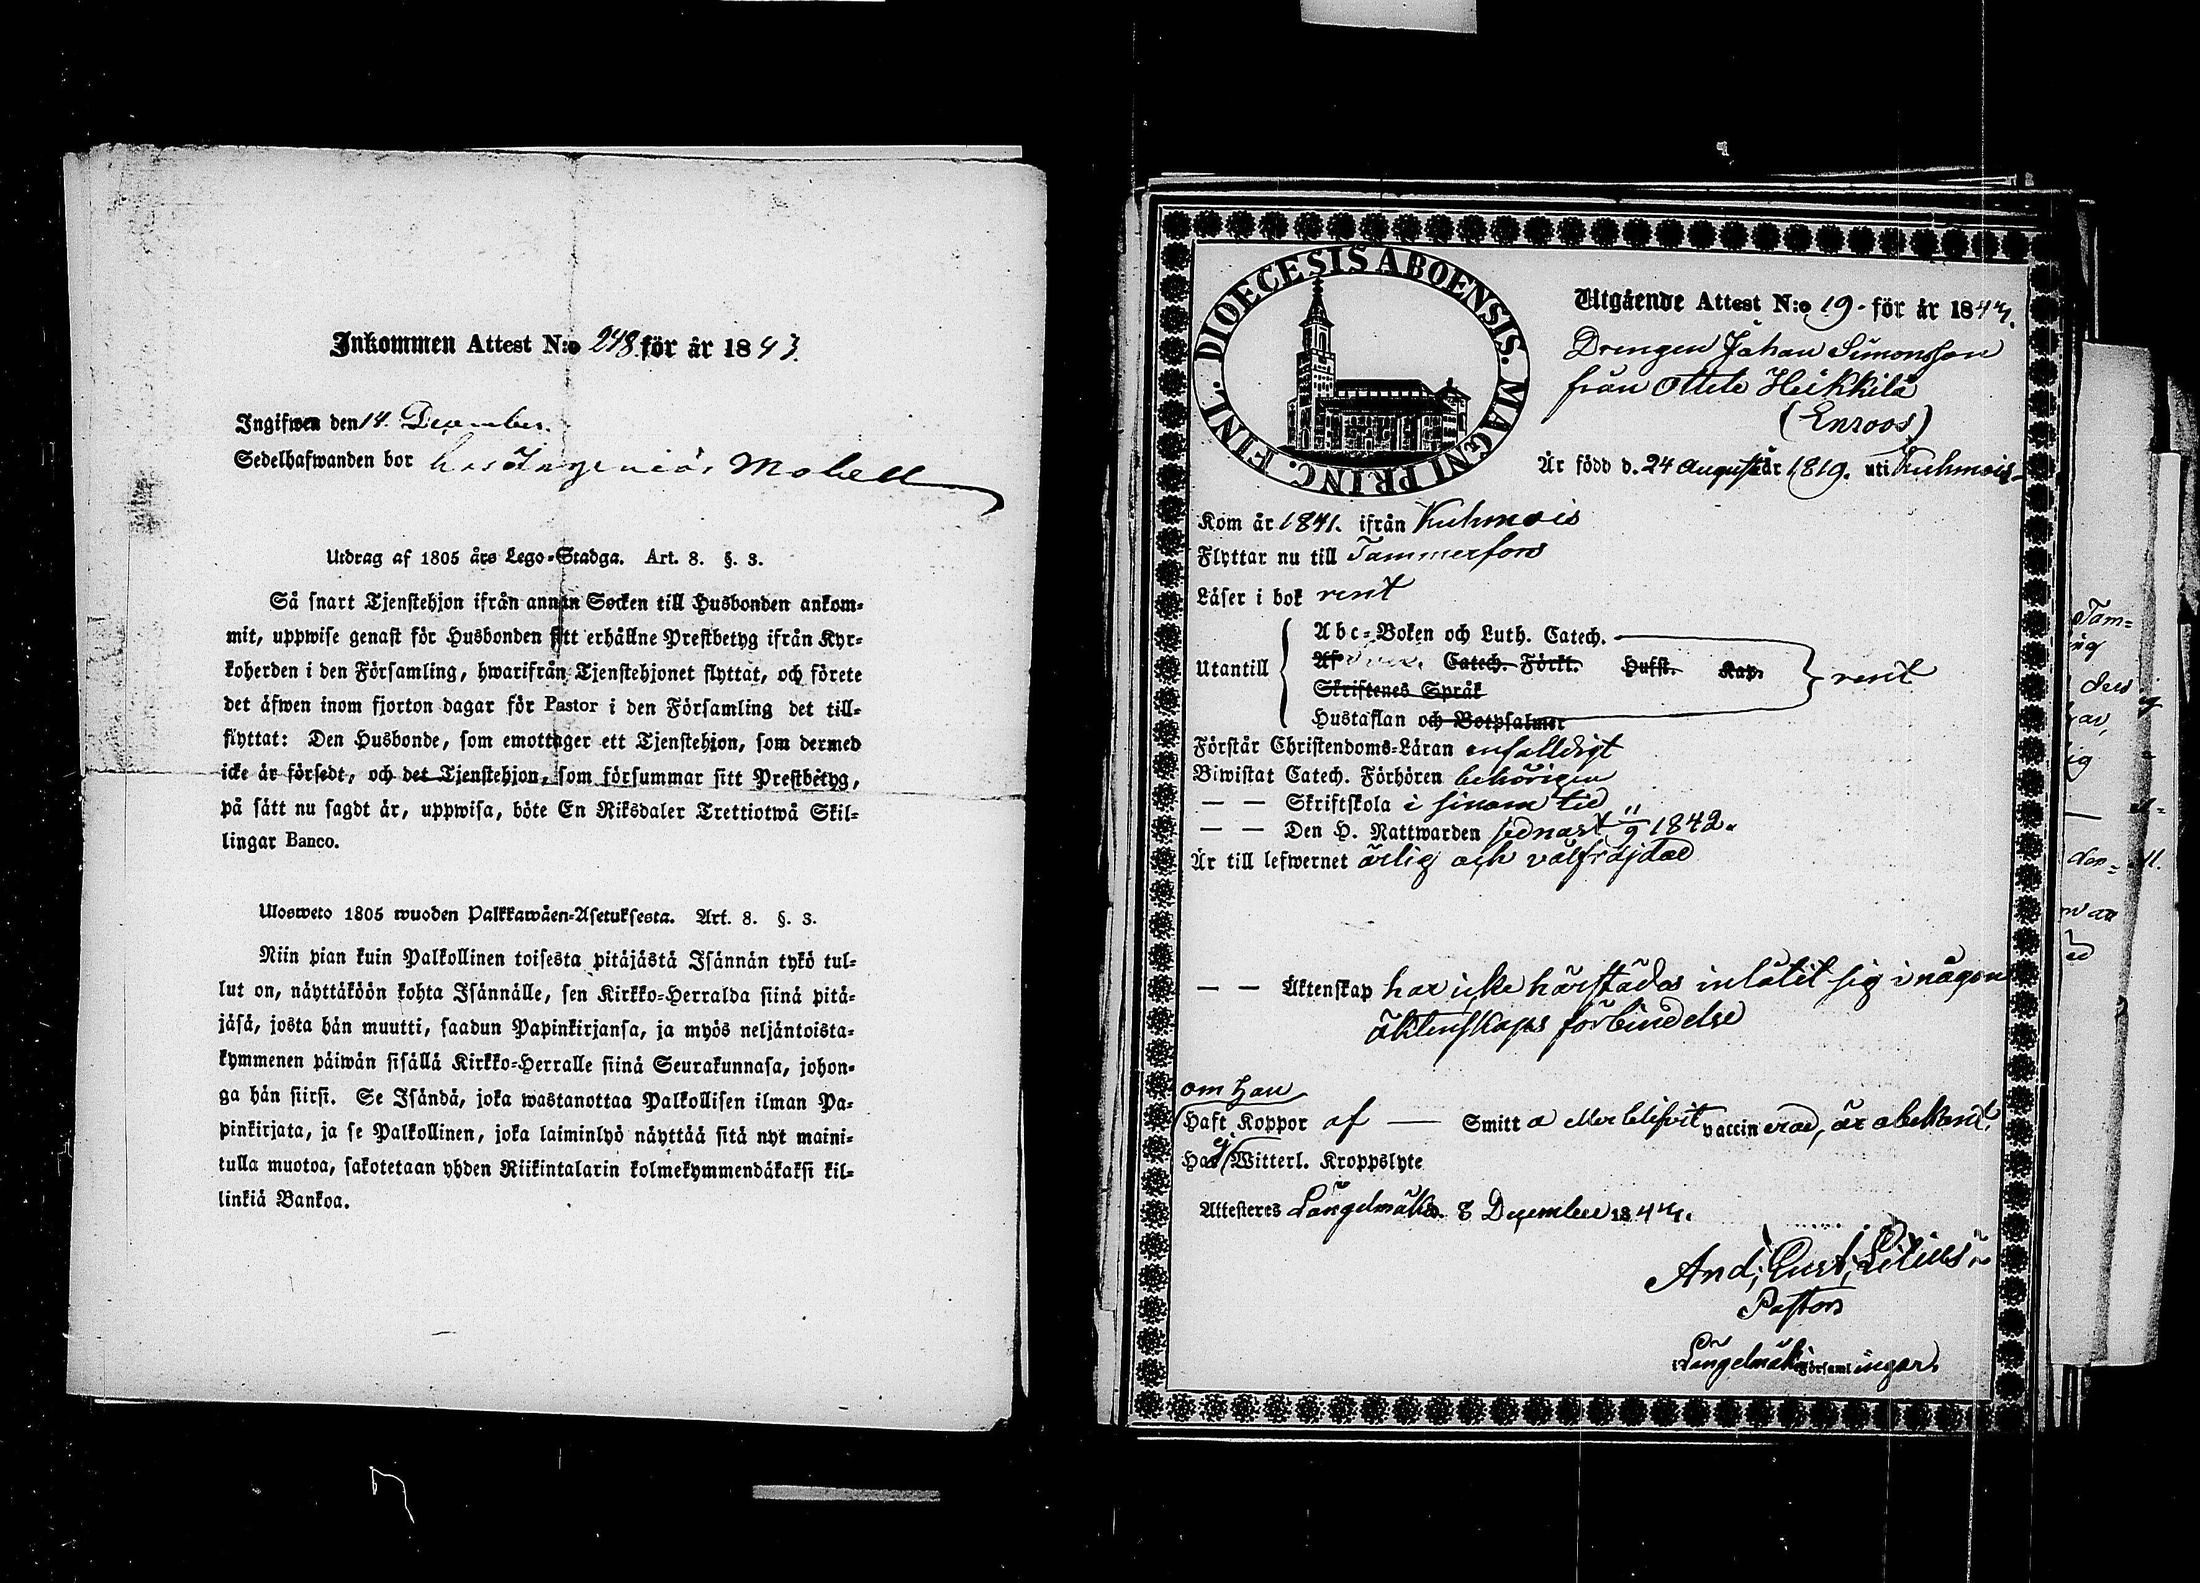 Inkommen Attest N:o 248. för år 1843.
Ingifwen den 14. December.
Sedelhafwanden bor hos Ingeniör Mobell
Utdrag af 1805 års Lego-Stadga. Art. 8. §. 3.
Så snart Tjenstehjon ifrån annan Socken till Husbonden ankom-
mit, uppwise genast för Husbonden sitt erhållne Prestbetyg ifrån Kyr-
koherden i den Församling, hwarifrån Tjenstehjonet flyttat, och förete
det äfwen inom fjorton dagar för Pastor i den Församling det till-
flyttat: Den Husbonde, som emottager ett Tjenstehjon, som dermed
icke är försedt, och det Tjenstehjon, som försummar sitt Prestbetyg,
på sätt nu sagdt är, uppwisa, böte En Riksdaler Trettiotwå Skil-
lingar Banco.
Ulosweto 1805 wuoden Palkkawäen-Asetuksesta. Art. 8. §. 3.
Niin pian kuin Palkollinen toisesta pitäjästä Isännän tykö tul-
lut on, näyttäköön kohta Isännälle, sen Kirkko-Herralda siinä pitä-
jäsä, josta hän muutti, saadun Papinkirjansa, ja myös neljäntoista-
kymmenen päiwän sisällä Kirkko-Herralle siinä Seurakunnasa, johon-
ga hän siirsi. Se Isändä, joka wastanottaa Palkollisen ilman Pa-
pinkirjata, ja se Palkollinen, joka laiminlyö näyttää sitä nyt maini-
tulla muotoa, sakotetaan yhden Riikintalarin kolmekymmendäkaksi kil-
linkiä Bankoa.
DIOECESIS ABOENSIS. MAGNI PRINC. FINL.
Utgående Attest N:o 19. för år 1843.
Drengen Johan Simonsson
från Ottila Heikkilä
(Enroos)
Är född d. 24 Augusti år 1819. uti Kuhmois
Kom år 1841. ifrån Kuhmois
Flyttar nu till Tammerfors
Läser i bok rent
Utantill
Abc-Boken och Luth. Catech.
Af Catech. Förkl. Hufst. Kap.
Skriftenes Språk
Hustaflan och Botpsalmer
rent
Förstår Christendoms-Läran enfalldigt
Biwistat Catech. Förhören behörigen
— — Skriftskola i sinom tid
— — Den H. Nattwarden sednast 11/9 1842.
Är till lefwernet ärlig och välfräjdad
— — Äktenskap har icke härstädes inlåtit sig i någon
äktenskaps förbindelse
om han
Haft Koppor af — Smitta eller blifvit vaccinerad, är obekant.
Har ej Witterl. Kroppslyte
Attesteres Längelmäki d. 8 December 1843.
And; Gust; Lilius
Pastor
i Längelmäki Församlingar.